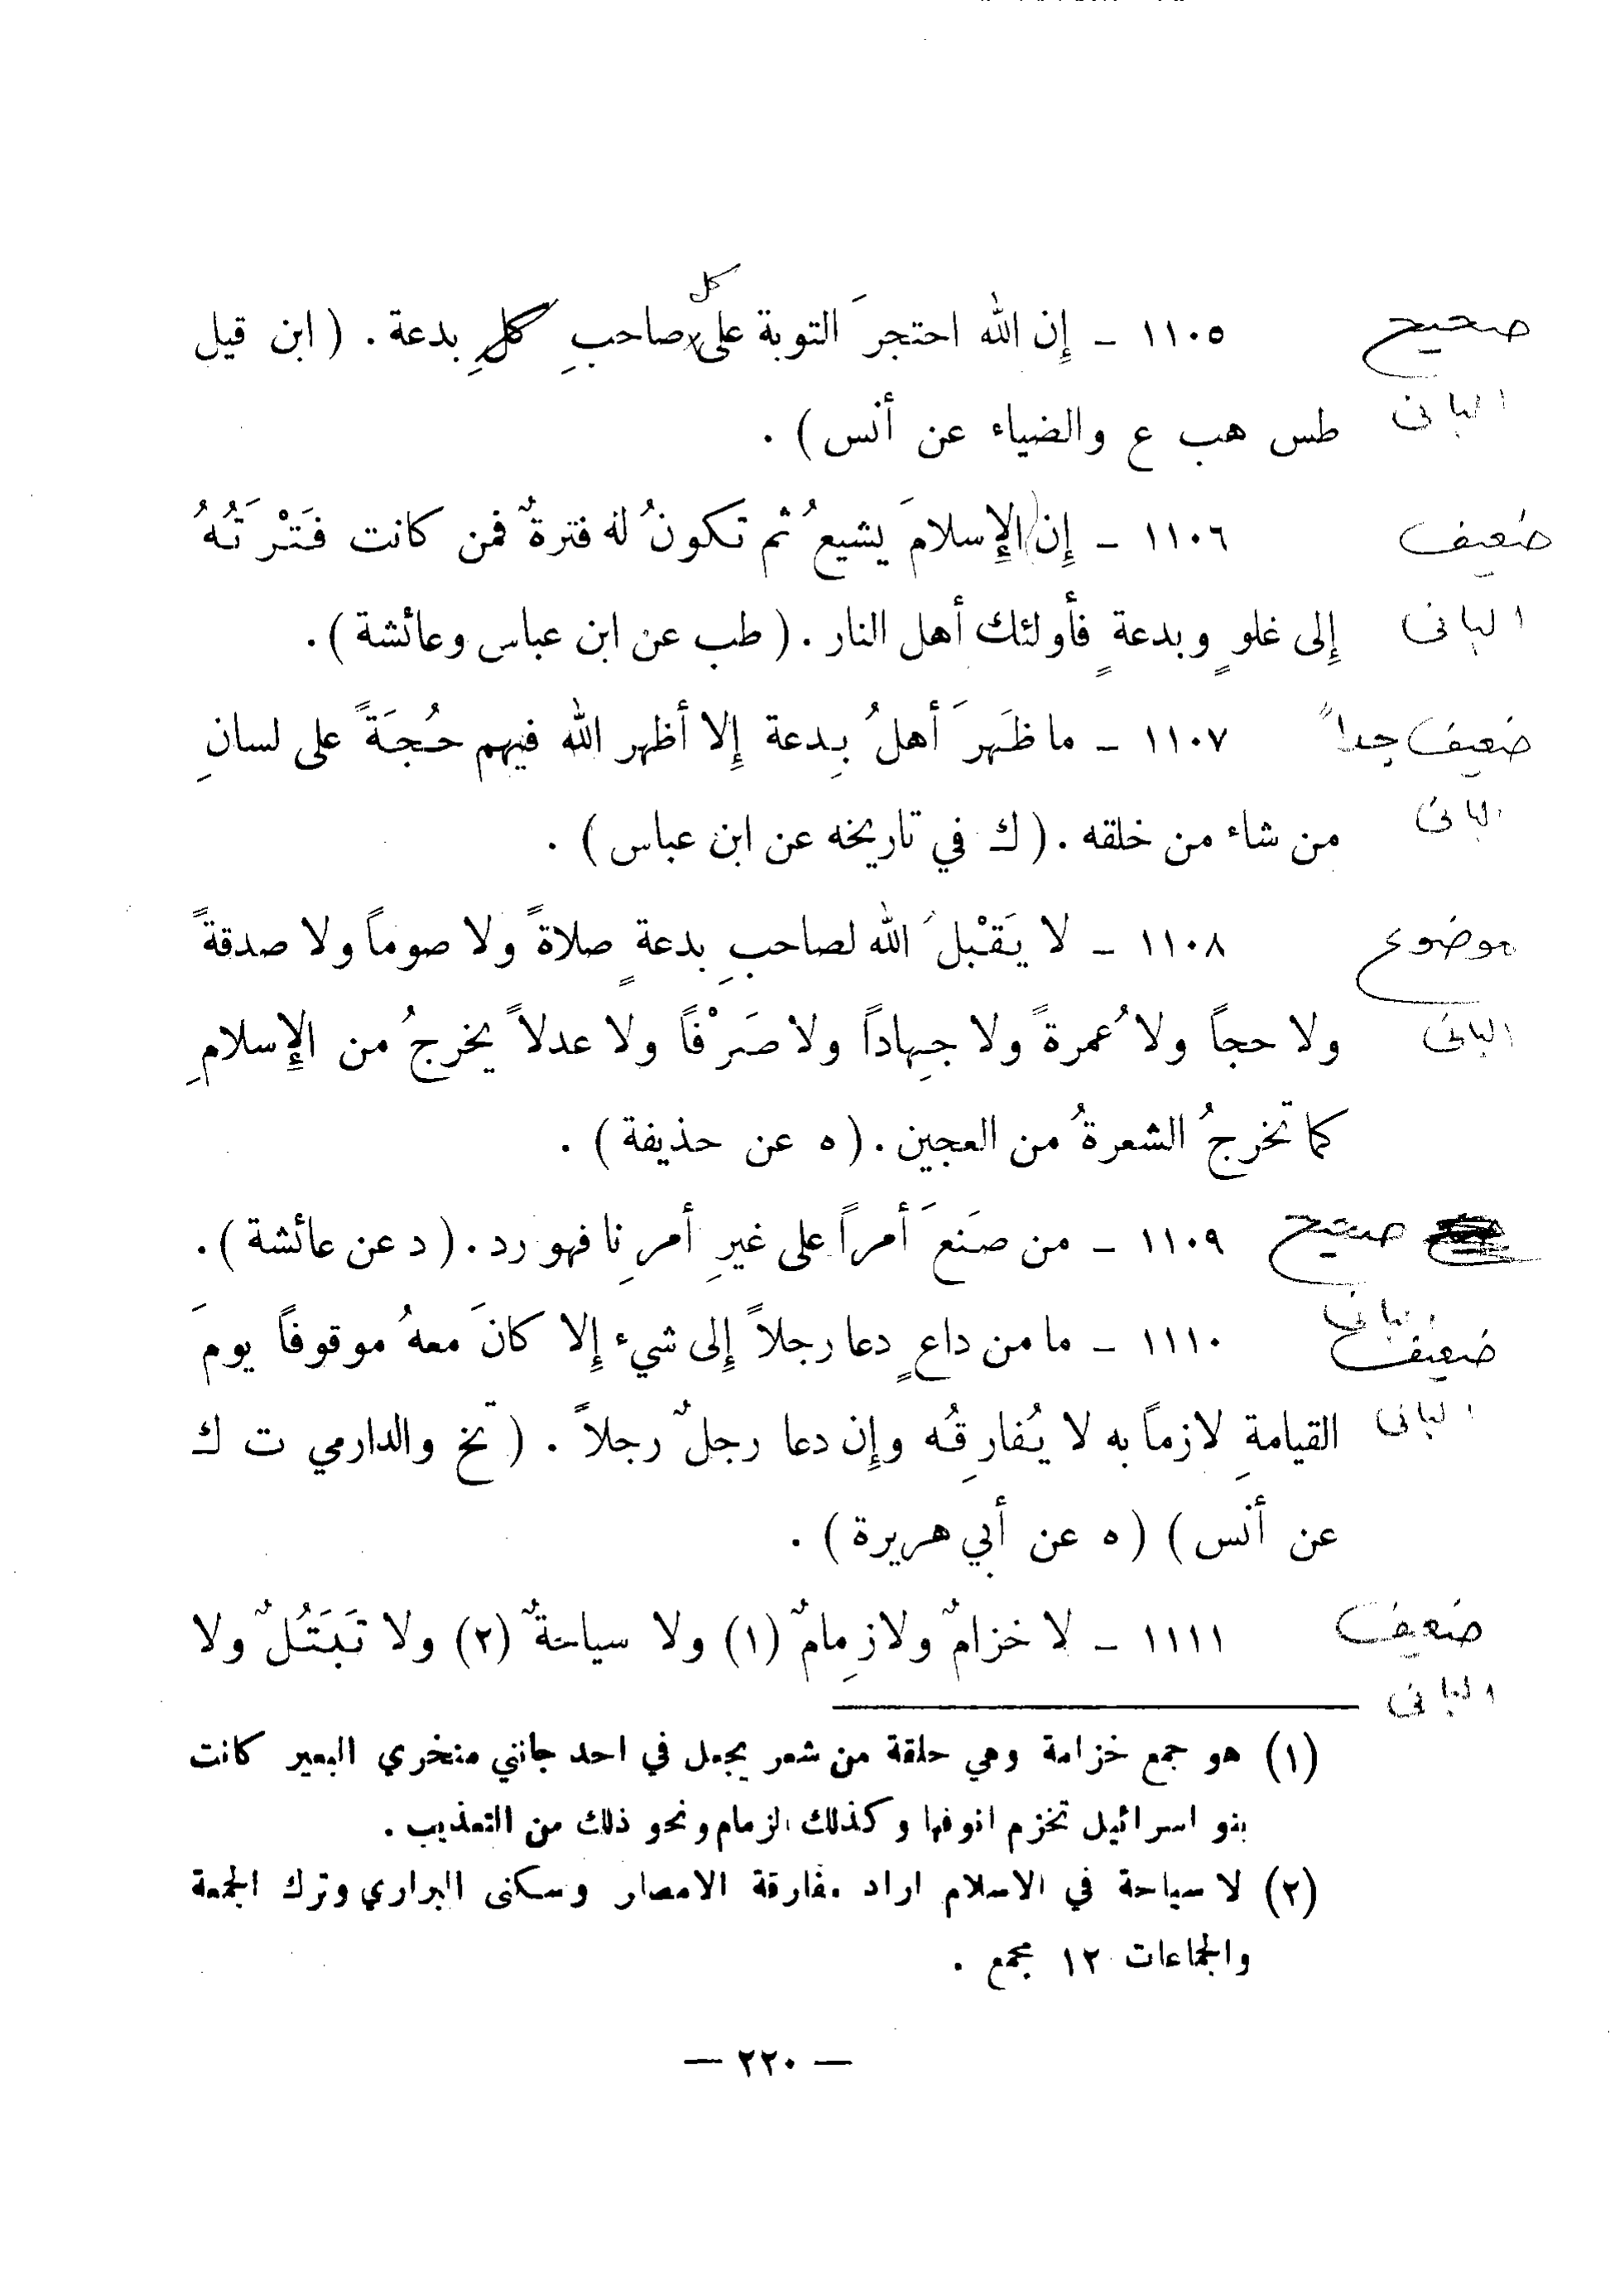 صحيح ١١٠٥ ـ إِن الله احتجرَ التوبة على كل صاحبِ كلِ بدعة . ( ابن قيل
الباني طس هب ع والضياء عن أنس ) .
ضعيف ١١٠٦ ـ إِن الإِسلامَ يشيعُ ثم تكونُ له فترةٌ فمن كانت فَتْرَتُهُ
الباني إِلى غلوٍ وبدعةٍ فأولئك أهل النار . ( طب عن ابن عباس وعائشة ) .
ضعيف جداً ١١٠٧ ـ ما ظَهرَ أهلُ بِدعة إِلا أظهر الله فيهم حُجَةً على لسانِ
الباني من شاء من خلقه . ( ك في تاريخه عن ابن عباس ) .
موضوع ١١٠٨ ـ لا يَقْبلُ الله لصاحبِ بدعةٍ صلاةً ولا صوماً ولا صدقةً
الباني ولا حجاً ولا عُمرةً ولا جِهاداً ولا صَرْفاً ولا عدلاً يخرجُ من الإِسلامِ
كما تخرجُ الشعرةُ من العجين . ( ه عن حذيفة ) .
صحيح ١١٠٩ ـ من صنَعَ أمراً على غيرِ أمرِنا فهو رد . ( د عن عائشة ) .
الباني
ضعيف ١١١٠ ـ ما من داعٍ دعا رجلاً إِلى شيء إِلا كانَ معهُ موقوفاً يومَ
الباني القيامةِ لازماً به لا يُفارِقُه وإِن دعا رجلٌ رجلاً . ( تخ والدارمي ت ك
عن أنس ) ( ه عن أبي هريرة ) .
ضعيف ١١١١ ـ لا خزامٌ ولا زِمامٌ (١) ولا سياحةٌ (٢) ولا تَبَتُلٌ ولا
الباني
(١) هو جمع خزامة وهي حلقة من شعر يجعل في احد جانبي منخري البعير كانت
بنو اسرائيل تخزم انوفها وكذلك الزمام ونحو ذلك من التعذيب .
(٢) لا سياحة في الاسلام اراد مفارقة الامصار وسكنى البراري وترك الجمعة
والجماعات ١٢ مجمع .
— ٢٢٠ —